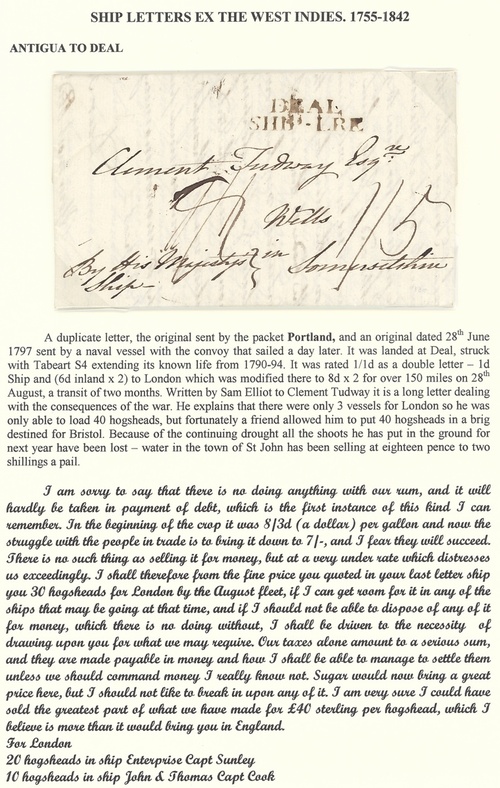 SHIP LETTERS EX THE WEST INDIES. 1755-1842
ANTIGUA TO DEAL
DEAL
SHIP-LRE
Clement Tudway Esqre
Wells
1/5
By His Majestys in Somersetshire
Ship
A duplicate letter, the original sent by the packet Portland, and an original dated 28th June
1797 sent by a naval vessel with the convoy that sailed a day later. It was landed at Deal, struck
with Tabeart S4 extending its known life from 1790-94. It was rated 1/1d as a double letter – 1d
Ship and (6d inland x 2) to London which was modified there to 8d x 2 for over 150 miles on 28th
August, a transit of two months. Written by Sam Elliot to Clement Tudway it is a long letter dealing
with the consequences of the war. He explains that there were only 3 vessels for London so he was
only able to load 40 hogsheads, but fortunately a friend allowed him to put 40 hogsheads in a brig
destined for Bristol. Because of the continuing drought all the shoots he has put in the ground for
next year have been lost – water in the town of St John has been selling at eighteen pence to two
shillings a pail.
I am sorry to say that there is no doing anything with our rum, and it will
hardly be taken in payment of debt, which is the first instance of this kind I can
remember. In the beginning of the crop it was 8/3d (a dollar) per gallon and now the
struggle with the people in trade is to bring it down to 7/-, and I fear they will succeed.
There is no such thing as selling it for money, but at a very under rate which distresses
us exceedingly. I shall therefore from the fine price you quoted in your last letter ship
you 30 hogsheads for London by the August fleet, if I can get room for it in any of the
ships that may be going at that time, and if I should not be able to dispose of any of it
for money, which there is no doing without, I shall be driven to the necessity of
drawing upon you for what we may require. Our taxes alone amount to a serious sum,
and they are made payable in money and how I shall be able to manage to settle them
unless we should command money I really know not. Sugar would now bring a great
price here, but I should not like to break in upon any of it. I am very sure I could have
sold the greatest part of what we have made for £40 sterling per hogshead, which I
believe is more than it would bring you in England.
For London
20 hogsheads in ship Enterprise Capt Sunley
10 hogsheads in ship John & Thomas Capt Cook